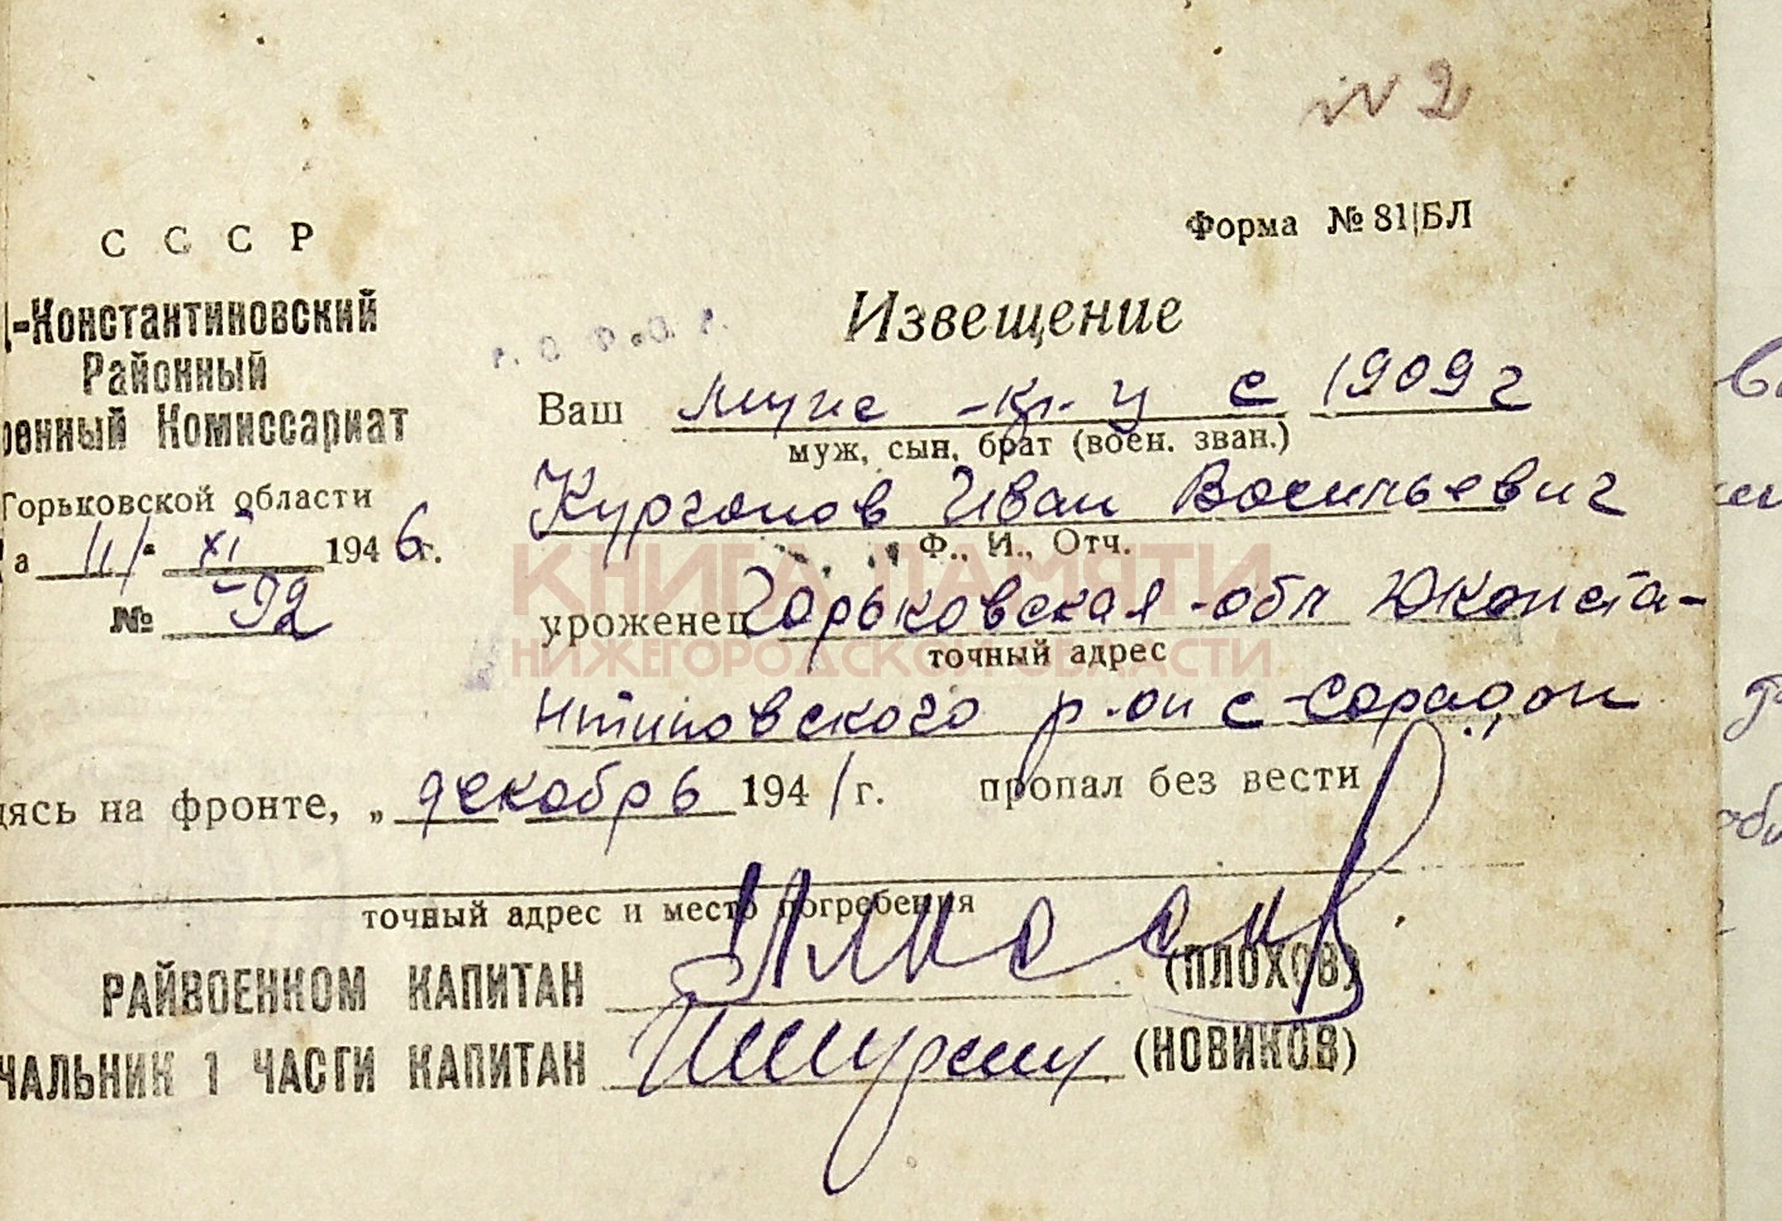 № 2
Форма № 81|БЛ
С С С Р
Д-Константиновский
Районный
военный Комиссариат
Горьковской области
а 11 XI 1946 г.
№ 92
Извещение
Ваш муж кр-ц с 1909 г
муж, сын, брат (воен. зван.)
Курганов Иван Васильевич
Ф., И., Отч.
КНИГА ПАМЯТИ
уроженец Горьковская обл Дконста-
НИЖЕГОРОДСКОЙ ОБЛАСТИ
точный адрес
нтиновского р-он с-
дясь на фронте, „ декабрь 1941 г. пропал без вести
точный адрес и место погребения
РАЙВОЕНКОМ КАПИТАН (ПЛОХОВ)
ЧАЛЬНИК 1 ЧАСТИ КАПИТАН (НОВИКОВ)